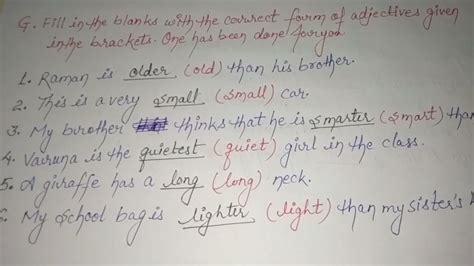 G. Fill in the blanks with the correct form of adjectives given
in the brackets. One has been done for you.
1. Raman is older (old) than his brother.
2. This is a very small (small) car.
3. My brother thinks that he is smarter (smart) than
4. Varuna is the quietest (quiet) girl in the class.
5. A giraffe has a long (long) neck.
6. My school bag is lighter (light) than my sister's